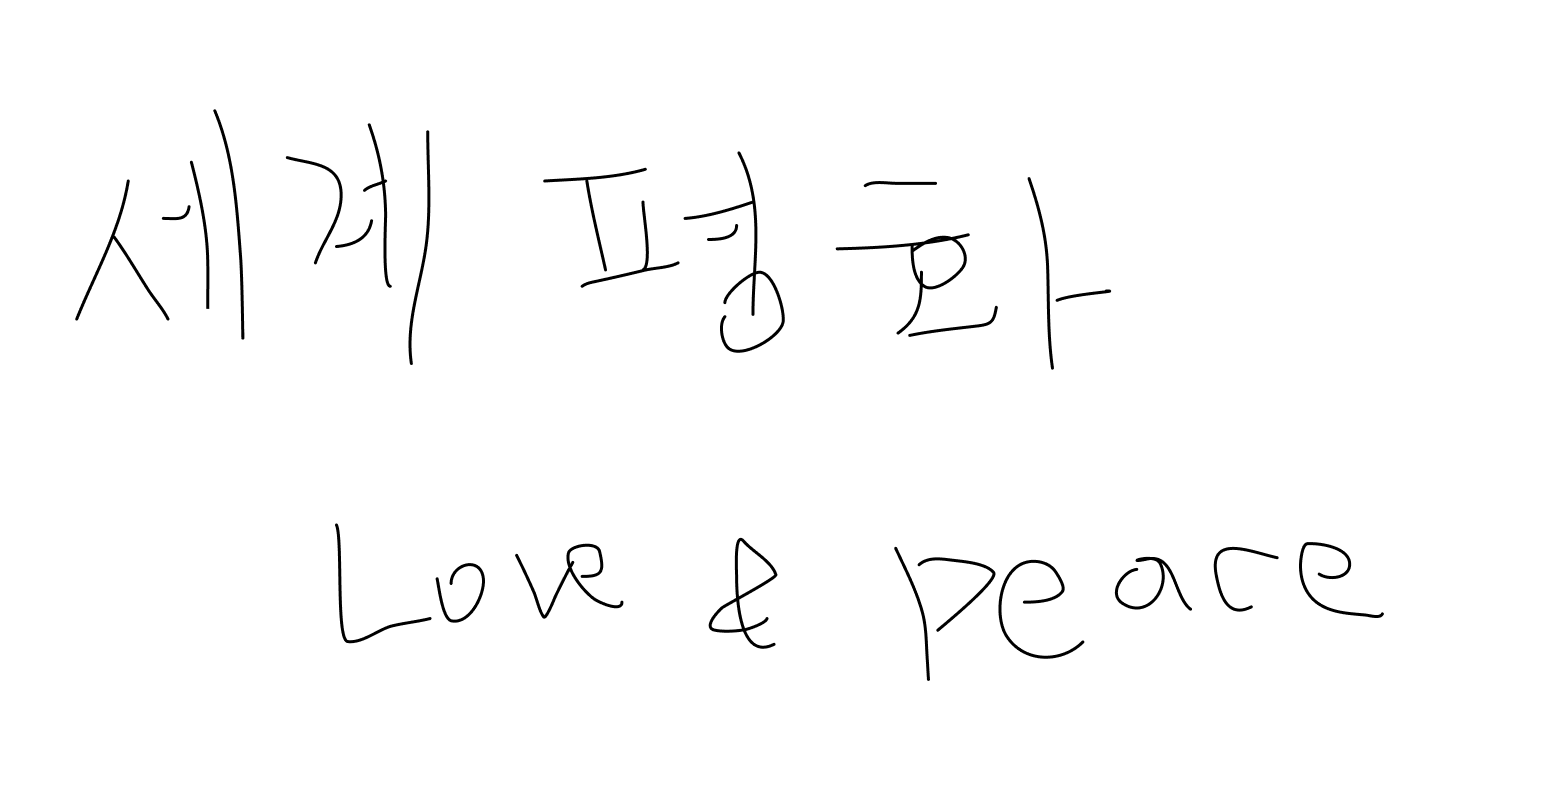 세계 평화
Love & peace